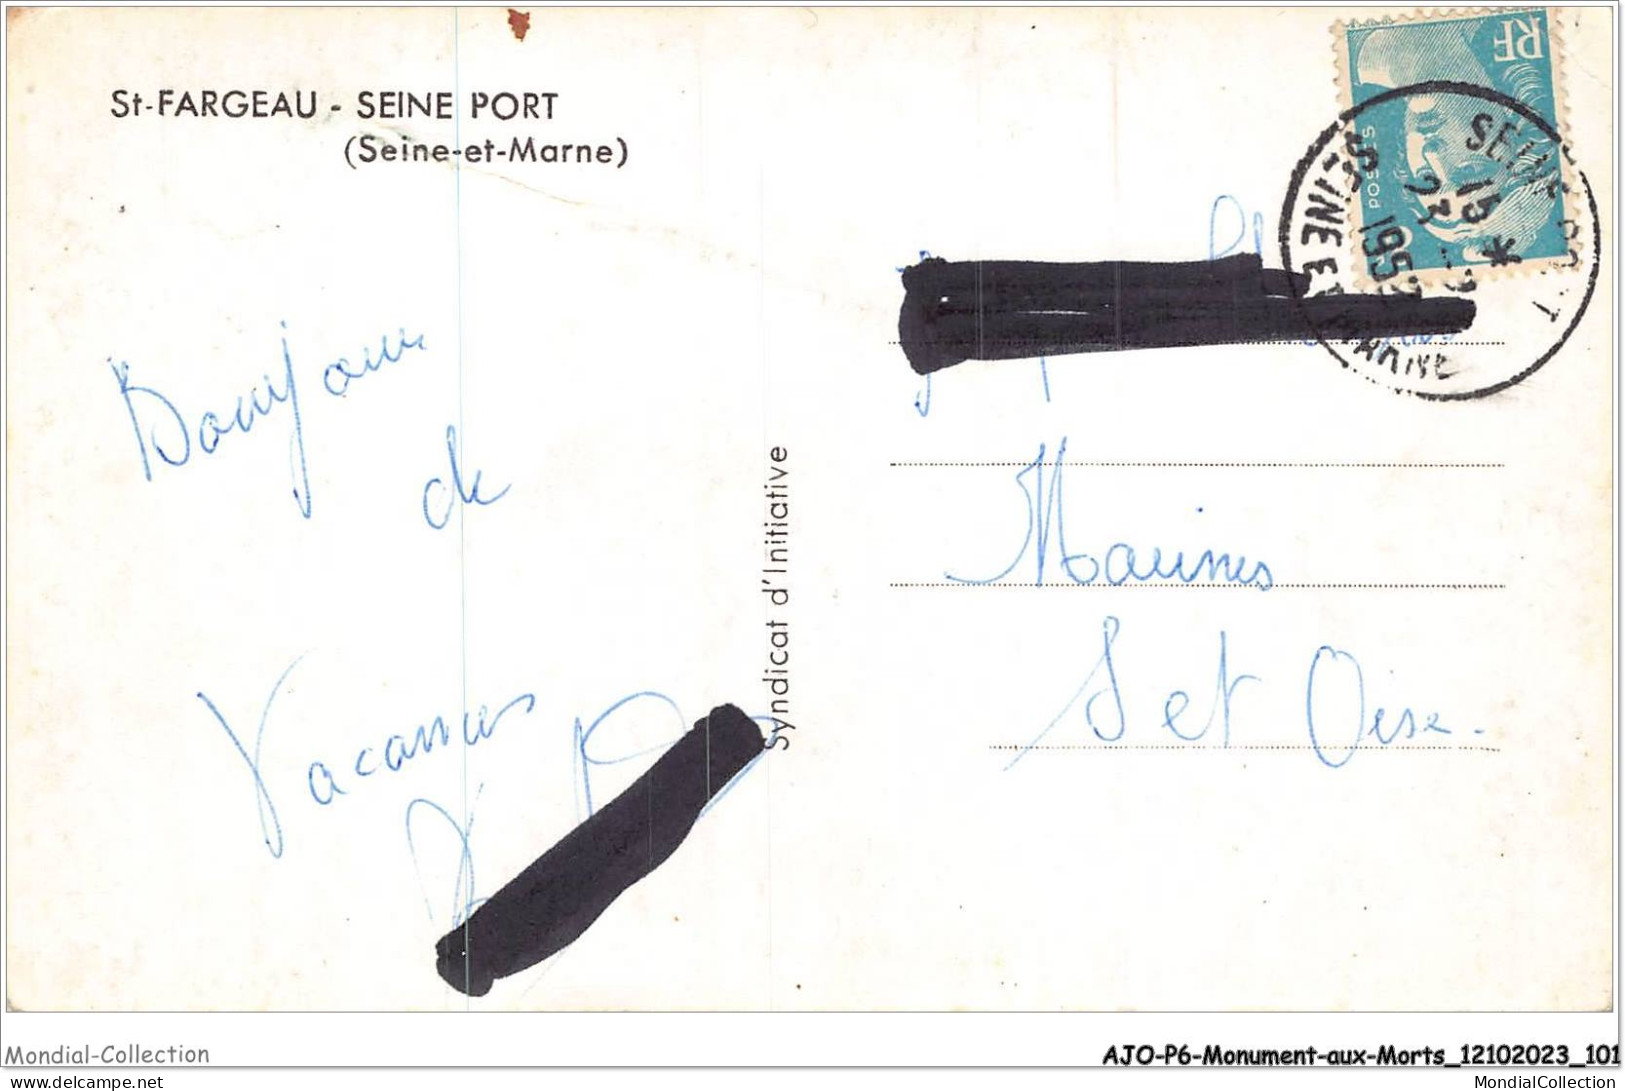 St-FARGEAU - SEINE PORT
(Seine-et-Marne)
Bonjour
de
Vacances
Syndicat d'Initiative
RF
POSTES
SEINE PORT
15 *
23 -9
1952
SEINE ET MARNE
Marines
S et Oise.
Mondial-Collection
AJO-P6-Monument-aux-Morts_12102023_101
www.delcampe.net
MondialCollection